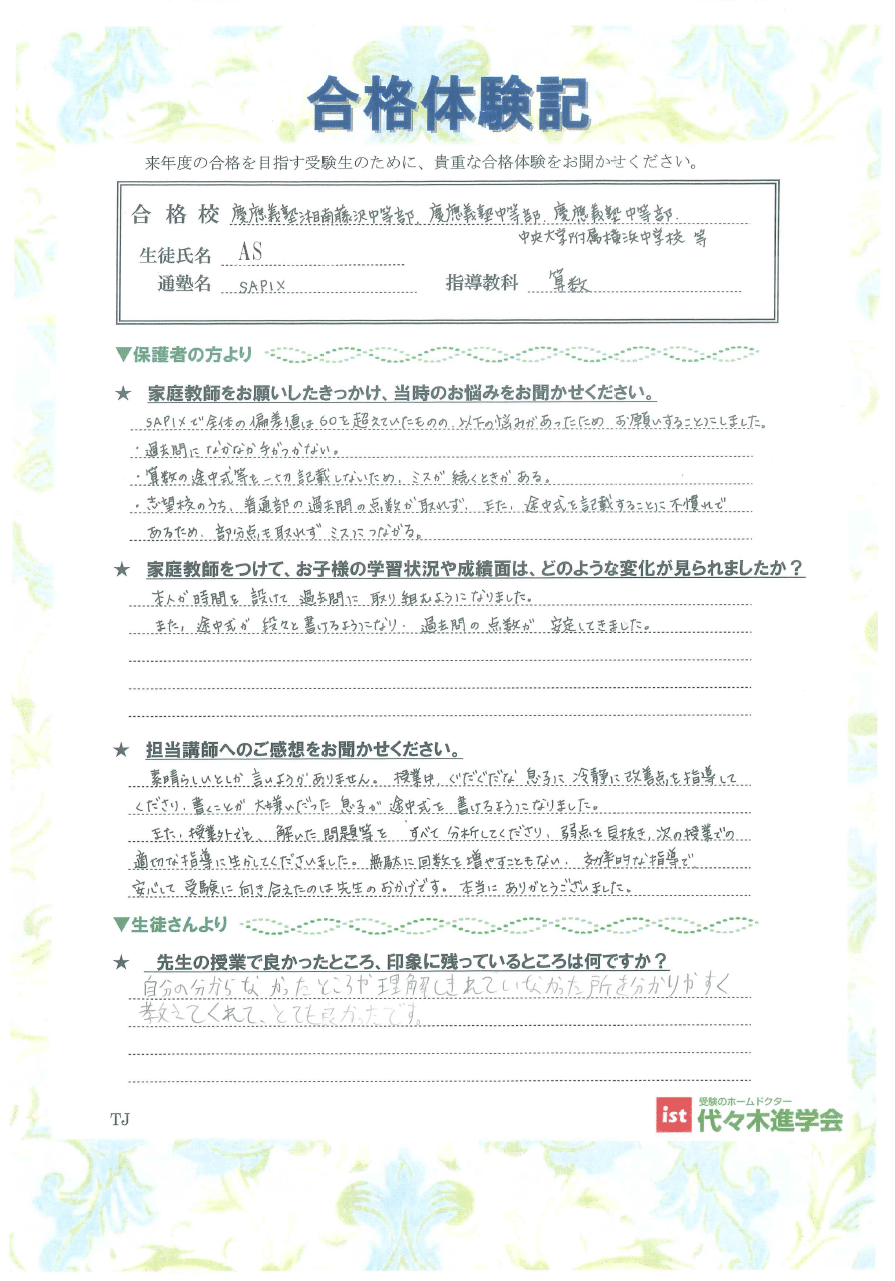 合格体験記
来年度の合格を目指す受験生のために、貴重な合格体験をお聞かせください。
合格校 慶應義塾湘南藤沢中等部、慶應義塾中等部、慶應義塾中等部、
中央大学附属横浜中学校 等
生徒氏名 AS
通塾名 SAPIX 指導教科 算数
▼保護者の方より
★ 家庭教師をお願いしたきっかけ、当時のお悩みをお聞かせください。
SAPIXで全体の偏差値は60を超えていたものの、以下の悩みがあったため お願いすることにしました。
・過去問に なかなか手がつかない。
・算数の途中式等を一切記載しないため、ミスが続くときがある。
・志望校のうち、普通部の過去問の点数が取れず、また、途中式を記載することに不慣れで
あるため、部分点も取れず ミスにつながる。
★ 家庭教師をつけて、お子様の学習状況や成績面は、どのような変化が見られましたか？
本人が時間を設けて 過去問に 取り組むようになりました。
また、途中式が 段々と書けるようになり、過去問の点数が 安定してきました。
★ 担当講師へのご感想をお聞かせください。
素晴らしいとしか言いようがありません。授業中、ぐだぐだな息子に冷静に改善点を指導して
くださり、書くことが大嫌いだった息子が途中式を書けるようになりました。
また、授業外でも、解いた問題等を すべて分析してくださり、弱点を見抜き、次の授業での
適切な指導に生かしてくださいました。無駄に回数を増やすこともない、効率的な指導で
安心して受験に向き合えたのは先生のおかげです。本当にありがとうございました。
▼生徒さんより
★ 先生の授業で良かったところ、印象に残っているところは何ですか？
自分の分からなかったところや理解しきれていなかった所を分かりやすく
教えてくれて、とても良かったです。
TJ
ist 受験のホームドクター
代々木進学会